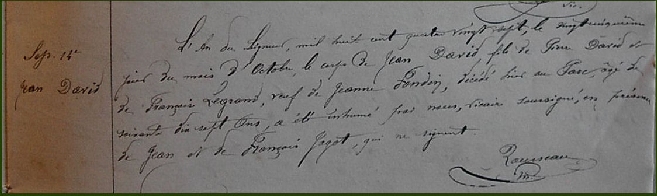 Sep. 14e
Jean David
L'An du Seigneur, mil huit cent quatre vingt sept, le vingt cinquième
jour du mois d'Octobre, le corps de Jean David, fils de Pierre David et
de François Legrand, veuf de Jeanne décédé hier au Parc, âgé de
soixante dix sept Ans, a été inhumé par nous, vicaire soussigné, en présence
de Jean et de François Jagot, qui ne signent
Rousseau